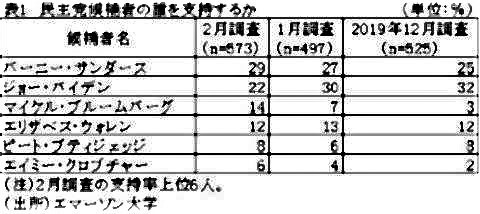 表1 民主党候補者の誰を支持するか (単位:%)
候補者名 2月調査 (n=573) 1月調査 (n=497) 2019年12月調査 (n=525)
バーニー・サンダース 29 27 25
ジョー・バイデン 22 30 32
マイケル・ブルームバーグ 14 7 3
エリザベス・ウォレン 12 13 12
ピート・ブティジェッジ 8 6 8
エイミー・クロブチャー 6 4 2
(注)2月調査の支持率上位6人。
(出所)エマーソン大学